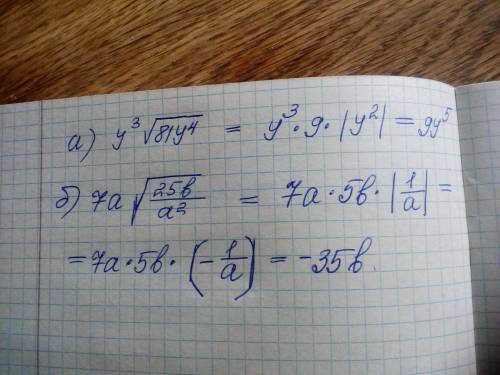 а) y³√81y⁴ = y³·9·|y²| = 9y⁵
б) 7a√25в/a² = 7a·5в·|1/a| =
= 7a·5в·(-1/a) = -35в.